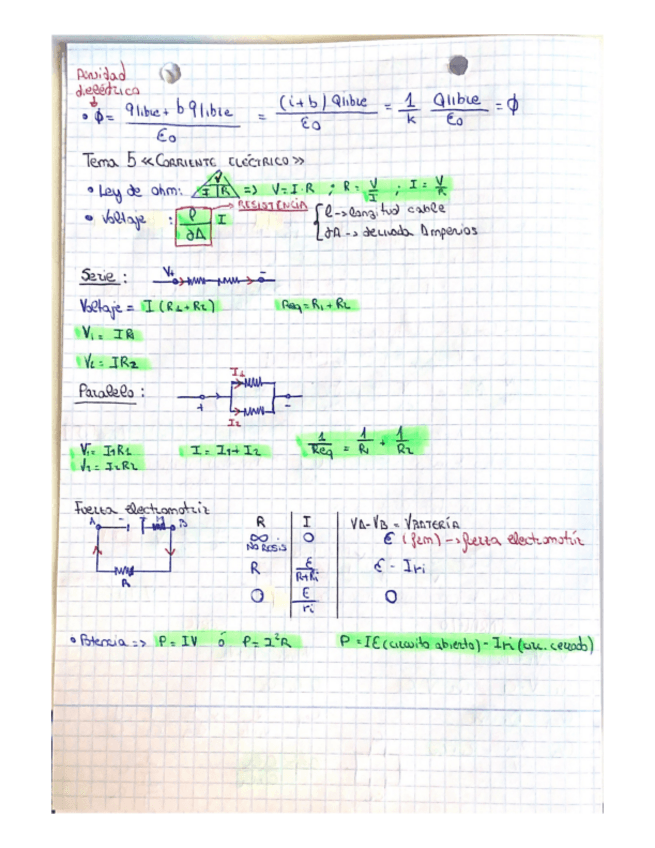 Densidad
dieléctrica
• ϕ = qlibre + b qlibre / ε0 = (1+b) Qlibre / ε0 = 1/k Qlibre / ε0 = ϕ
Tema 5 «CORRIENTE ELÉCTRICO»
• Ley de ohm: V I R => V = I·R ; R = V/I ; I = V/R
• Voltaje : l / ∂A I → RESISTENCIA { l → longitud cable
∂A → derivada Amperios
Serie : V+ -
Voltaje = I (R1 + R2) Req = R1 + R2
V1 = IR1
V2 = IR2
Paralelo : I1 + - I2
V1 = I1R1 I = I1 + I2 1/Req = 1/R1 + 1/R2
V2 = I2R2
Fuerza electromotriz
A - + B R
R I VA-VB = VBATERÍA
∞ NO RESIS 0 ε (fem) → fuerza electromotriz
R ε/R+Ri ε - Iri
0 ε/ri 0
• Potencia => P = IV ó P = I²R P = Iε (circuito abierto) - Iri (circ. cerrado)